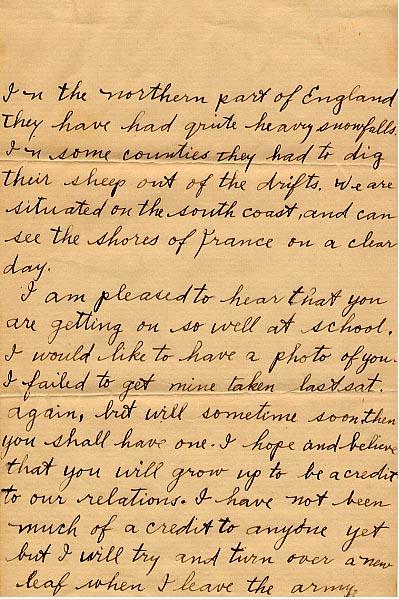 In the northern part of England
They have had qriute heavy snowfalls.
In some counties they had to dig
their sheep out of the drifts. We are
situated on the south coast, and can
see the shores of France on a clear
day.
I am pleased to hear that you
are getting on so well at school.
I would like to have a photo of you.
I failed to get mine taken last sat.
again, but will sometime soon then
you shall have one. I hope and believe
that you will grow up to be a credit
to our relations. I have not been
much of a credit to anyone yet
but I will try and turn over a new
leaf when I leave the army.